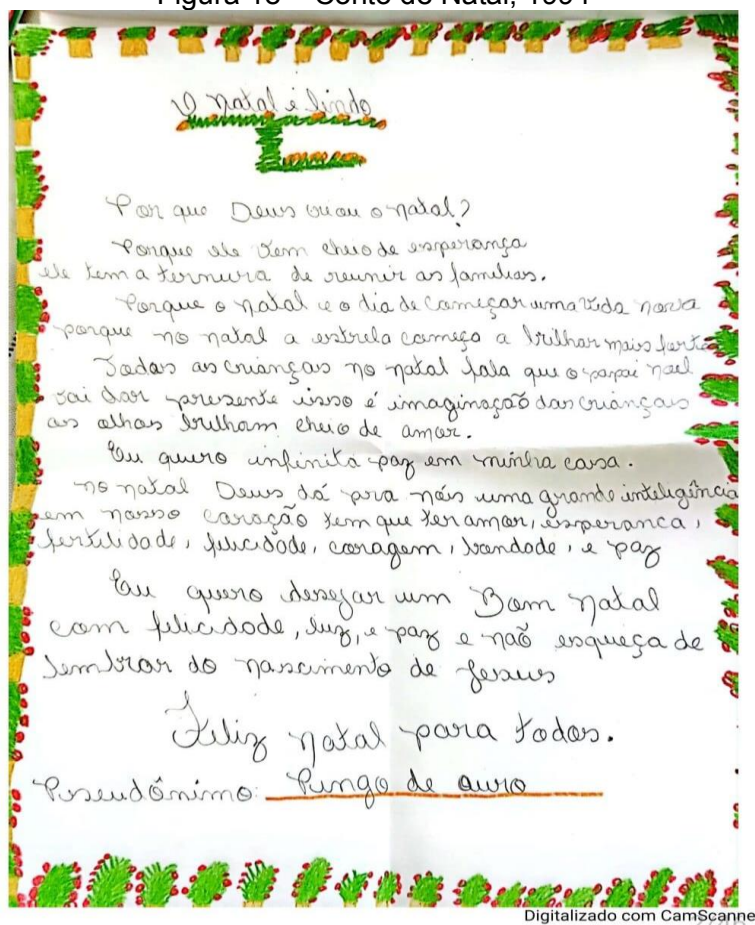 O natal é lindo
Por que Deus criou o natal?
Porque ele vem cheio de esperança
ele tem a ternura de reunir as famílias.
Porque o natal e o dia de começar uma vida nova
porque no natal a estrela começa a brilhar mais forte
Todas as crianças no natal fala que o papai noel
vai dar presente isso é imaginação das crianças
os olhos brilham cheio de amor.
Eu quero infinita paz em minha casa.
no natal Deus dá pra nós uma grande inteligência
em nosso coração tem que ter amor, esperanca,
fertilidade, felicidade, coragem, bondade, e paz
Eu quero desejar um Bom natal
com felicidade, luz, e paz e não esqueça de
lembrar do nascimento de Jesus
Feliz natal para todos.
Pseudônimo: Pingo de ouro
Digitalizado com CamScanne